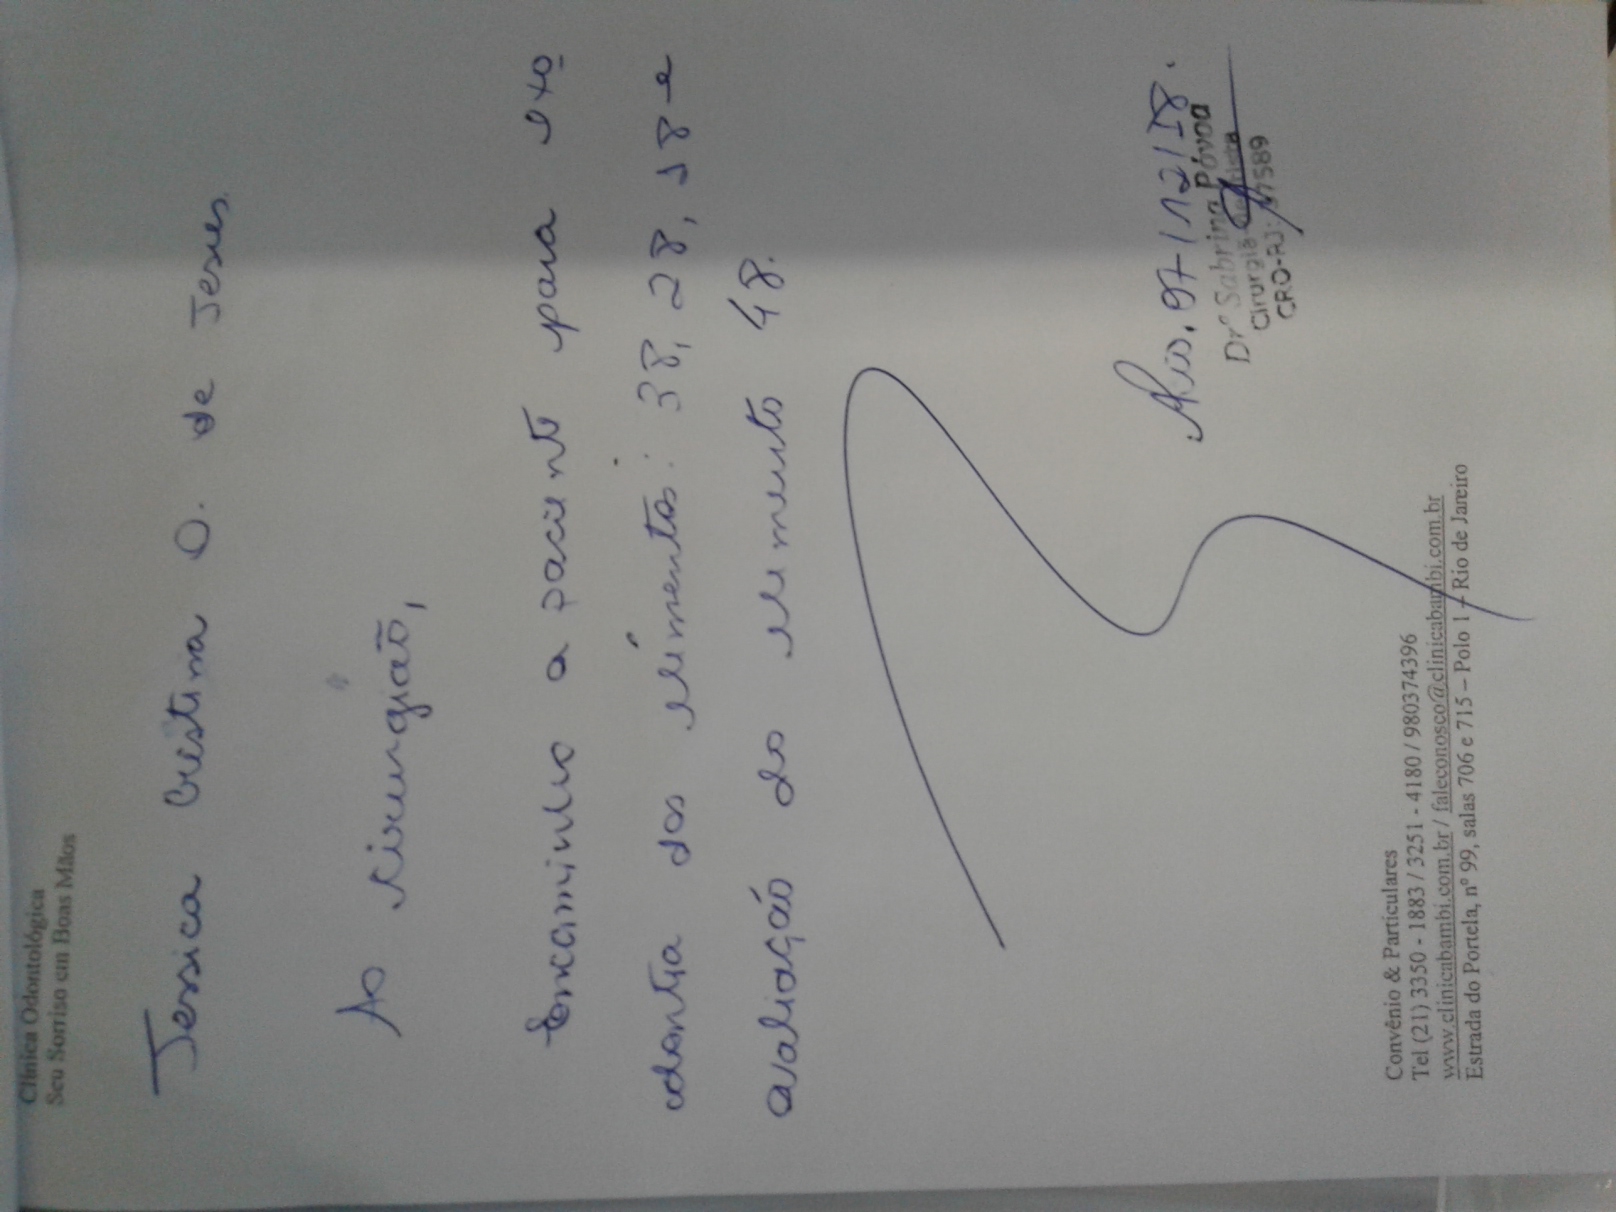 Clínica Odontológica
Seu Sorriso em Boas Mãos
Jessica Cristina O. de Jesus
Ao cirurgião,
Encaminho a paciente para exo
dontia dos elementos: 38, 28, 18 e
avaliação do elemento 48.
Rio, 07/12/18.
Drª Sabrina Póvoa
Cirurgiã
CRO-RJ:
Convênio & Particulares
Tel (21) 3350 - 1883 / 3251 - 4180 / 980374396
www.clinicabambi.com.br / faleconosco@clinicabambi.com.br
Estrada do Portela, nº 99, salas 706 e 715 – Polo 1 – Rio de Janeiro